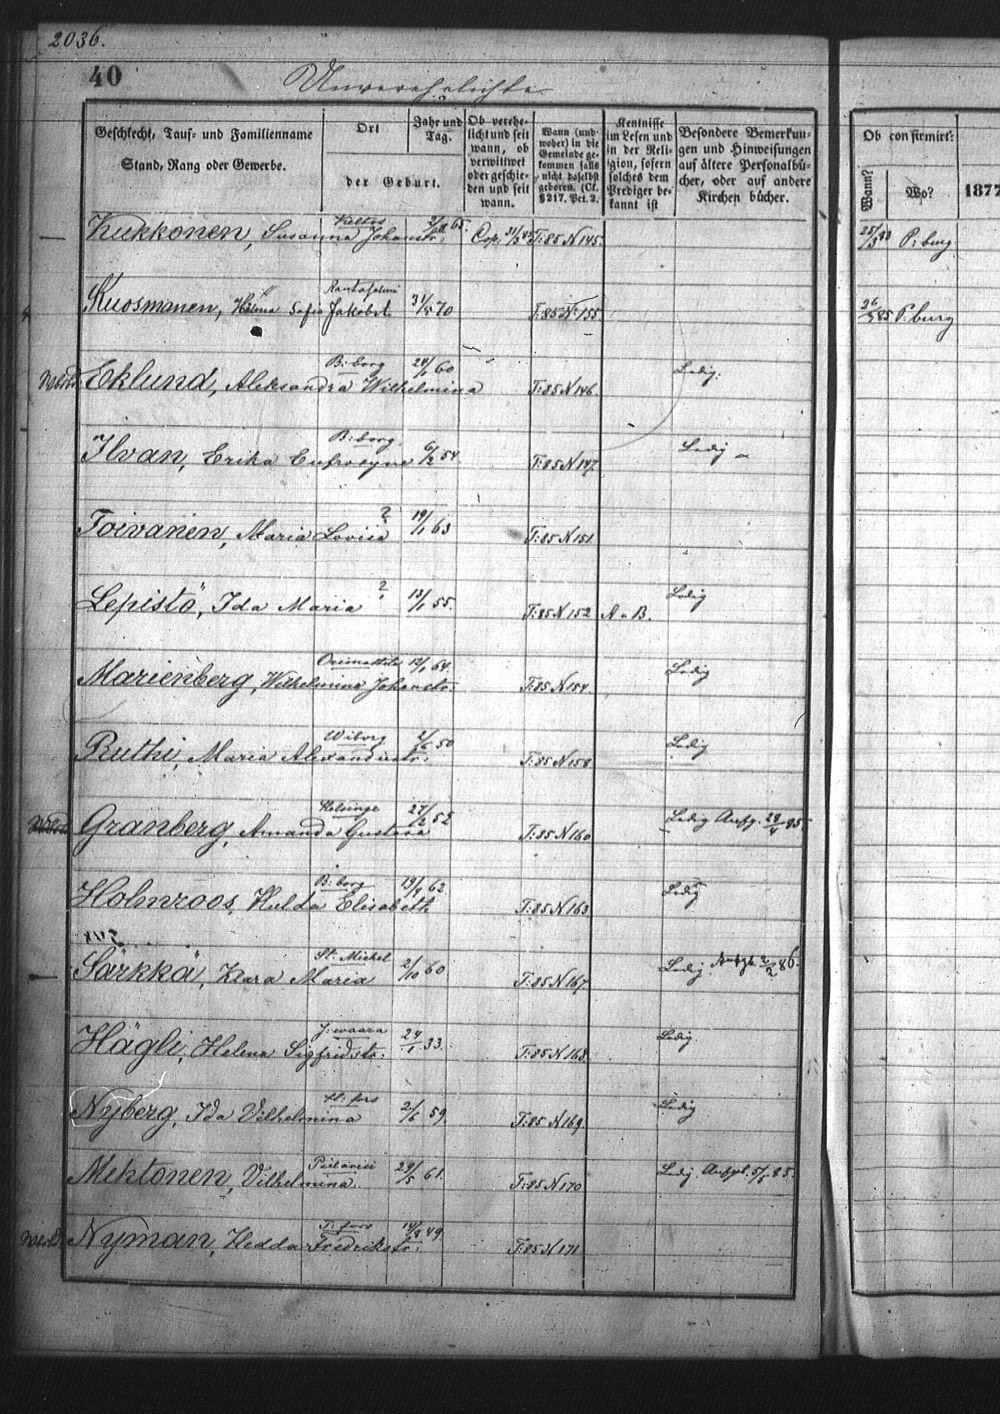 2036.
40
Unverehelichte
Geschlecht, Tauf- und Familienname
Stand, Rang oder Gewerbe.
Ort
der Geburt.
Jahr und Tag.
Ob verehe-
licht und seit
wann, ob
verwittwet
oder geschie-
den und seit
wann.
Wann (und
woher) in die
Gemeinde ge-
kommen falls
nicht daselbst
geboren. (Cf.
§ 217. Pct. 2.
Kentnisse
im Lesen und
in der Reli-
gion, sofern
solches dem
Prediger be-
kannt ist
Besondere Bemerkun-
gen und Hinweisungen
auf ältere Personalbü-
cher, oder auf andere
Kirchen bücher.
Ob confirmirt:
Wann?
Wo?
1877
Kukkonen, Susanna Johanstr. 65. Cop. 31/3 85 T:85 N 145. 25/3 83 P:burg
Rantasalmi
Kuosmanen, Hilma Sofia Jakobst. 31/5 70 T:85 N 155 85 P:burg
B:borg
Eklund, Aleksandra Wilhelmina 60 T:85 N 146. Ledig.
B:borg
Ilvan, Erika Eufrosyne 6/2 54 T:85 N 147. Ledig
Toivanen, Maria Lovisa ? 19/1 63 T:85 N 151.
Lepistö, Ida Maria ? 13/1 55. T:85 N 152 A u B. Ledig
Orimattila
Marienberg, Wilhelmina Johanstr. 64. T:85 N 154. Ledig
Wiborg
Ruthi, Maria Alexanderstr. 50 T:85 N 158 Ledig
Helsinge
Granberg, Amanda Gustava 27/2 52 T:85 N 160. Ledig Aufg. 28/4 85.
B:borg
Holmroos, Hulda Elisabeth 19/9 62 T:85 N 163 Ledig
St. Michel
Särkkä, Klara Maria 2/10 60 T:85 N 167 Ledig. Aufgb. 2/2 86.
J:waara
Hägli, Helena Sigfredstr. 24/1 33. T:85 N 168. Ledig
H:fors
Nyberg, Ida Vilhelmina 2/6 59. T:85 N 169. Ledig
Pielavesi
Mehtonen, Vilhelmina 29/5 61. T:85 N 170 Ledig Aufgb. 5/5 85.
T:fors
Nyman, Hedda Fredrikstr. 49 T:85 N 171